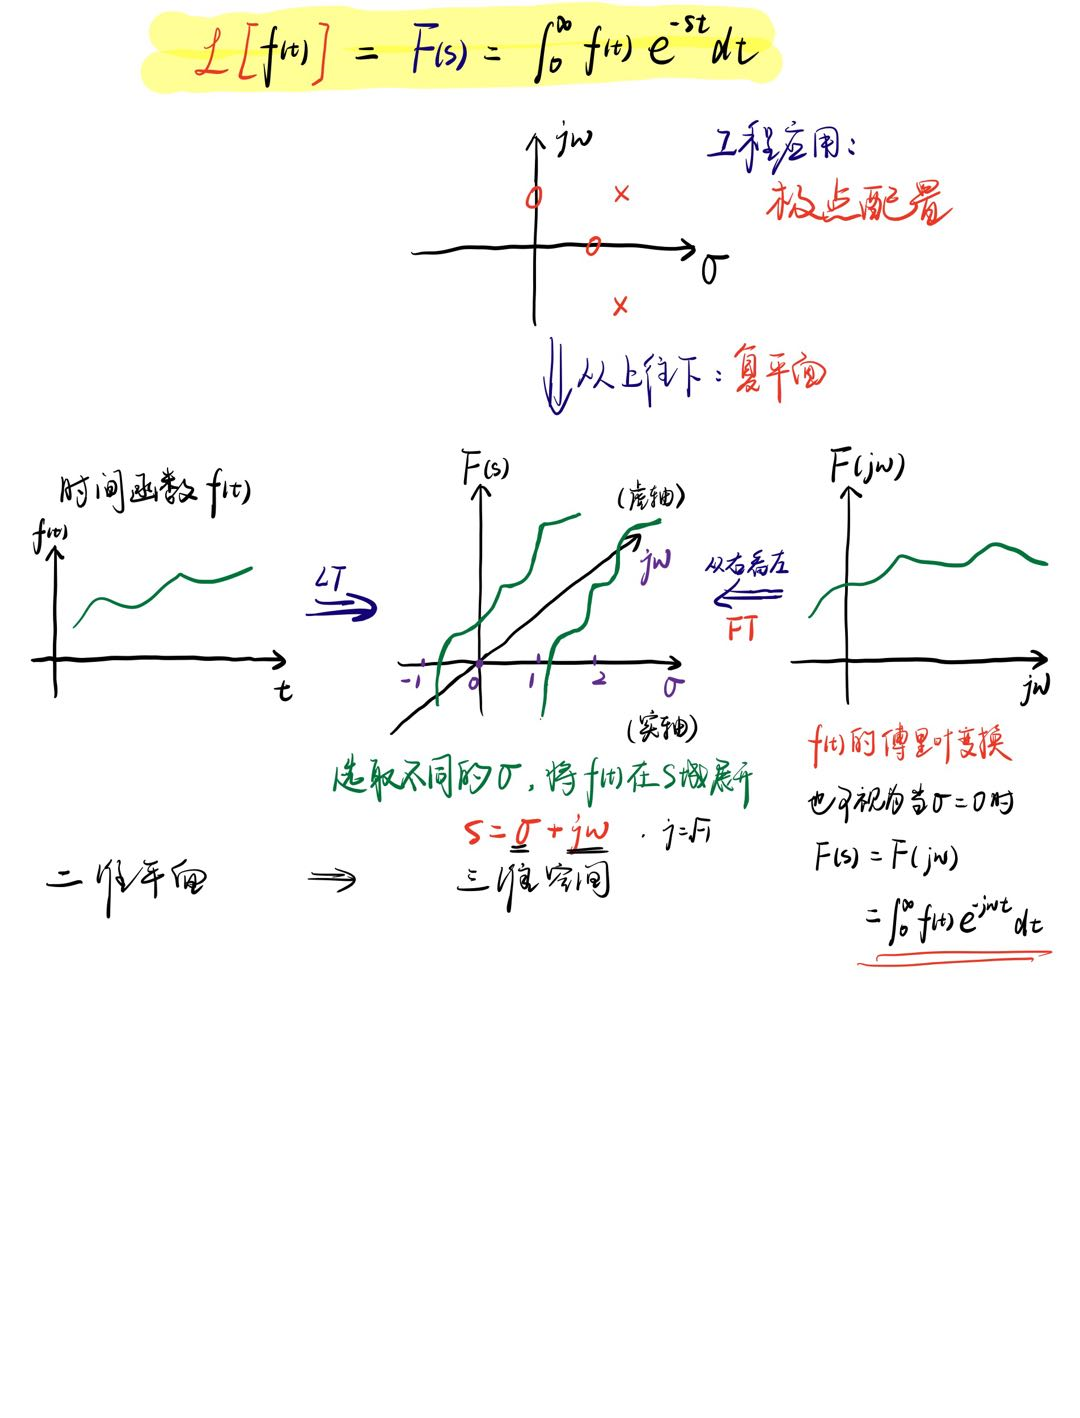 ℒ[f(t)] = F(s) = ∫₀^∞ f(t) e^{-st} dt
jω
工程应用：
极点配置
σ
从上往下：复平面
时间函数 f(t)
f(t)
t
LT
F(s)
(虚轴)
jω
-1 0 1 2 σ
(实轴)
从右看左
FT
F(jω)
jω
选取不同的σ，将f(t)在S域展开
s = σ + jω . j=√-1
二维平面 ⇒ 三维空间
f(t)的傅里叶变换
也可视为当σ=0时
F(s) = F(jω)
= ∫₀^∞ f(t) e^{-jωt} dt